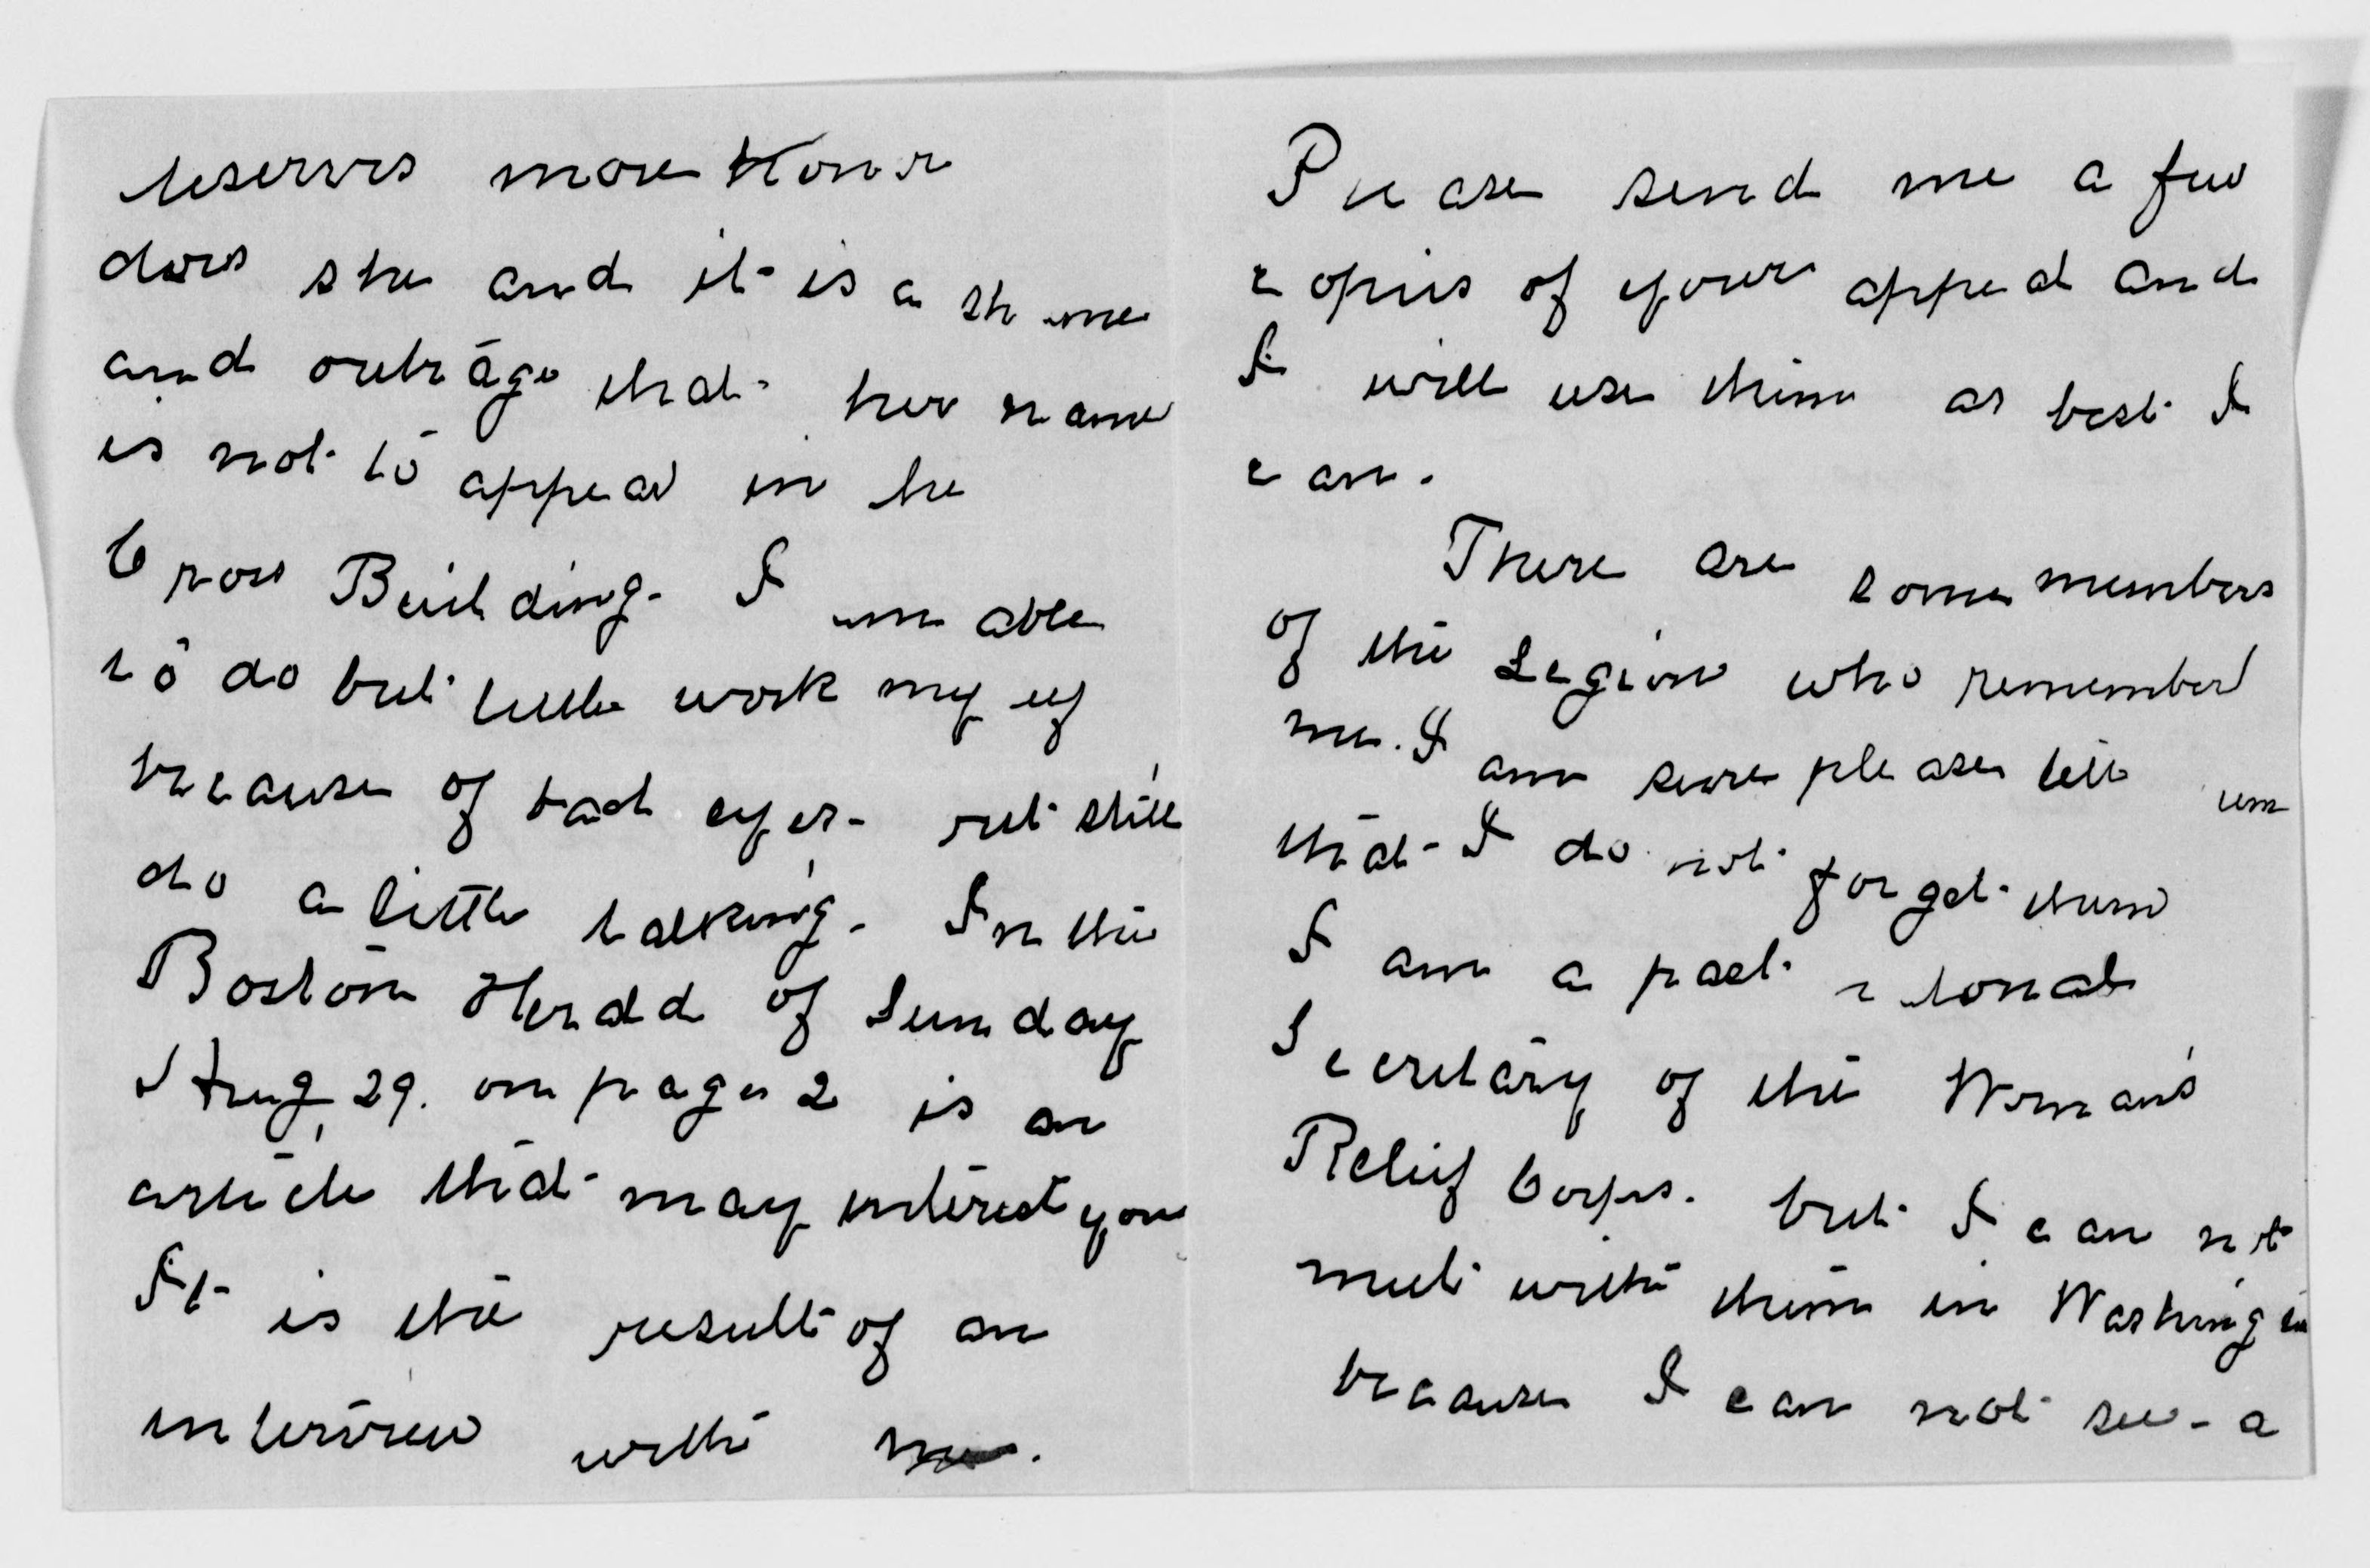 deserves more Honor
does she and it is a shame
and outrage that her name
is not to appear in the
Cross Building. I am able
to do but little work my
because of bad eyes - but still
do a little talking. In the
Boston Herald of Sunday
Aug. 29. on page 2 is an
article that may interest you
It is the result of an
interview with me.
Please send me a few
copies of your appeal and
I will use them as best I
can.
There are some members
of the Legion who remember
me. I am sure please tell
that I do not forget them
I am a past
Secretary of the Woman's
Relief Corps. but I can not
meet with them in Washington
because I can not see - a